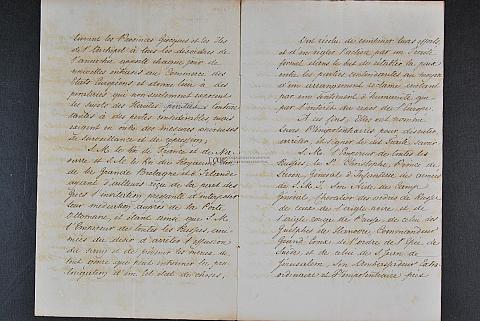 livrant les Provinces Grecques et les Iles
de l'Archipel à tous les désordres de
l'anarchie apporte chaque jour de
nouvelles entraves au Commerce des
Etats Européens et donne lieu à des
pirateries qui non seulement exposent
les sujets des Hautes parties Contrac-
tantes à des pertes considérables mais
exigent en outre des mesures onéreuses
de surveillance et de répression;
S.M. le Roi de France et de Na-
varre et S.M. le Roi du Royaume Uni
de la Grande Bretagne et d'Irlande
ayant d'ailleurs reçu de la part des
Grecs l'invitation pressante d'interposer
leur médiation auprès de la Porte
Ottomane, et étant ainsi que S.M.
l'Empereur de toutes les Russies, ani-
mées du désir d'arrêter l'effusion
du sang et de prévenir les maux de
tout genre que peut entraîner la pro-
longation d'un tel état de choses,
Ont résolu de combiner leurs efforts
et d'en régler l'action par un Traité
formel dans le but de rétablir la paix
entre les parties contendantes au moyen
d'un arrangement réclamé autant
par un sentiment d'humanité que
par l'intérêt du repos de l'Europe.
A ces fins, Elles ont nommé
leurs Plénipotentiaires pour discuter,
arrêter, et signer le dit Traité, savoir
S.M. l'Empereur de toutes les
Russies, le Sr. Christophe, Prince de
Lieven, Général d'Infanterie des armées
de S.M.I., Son Aide de Camp
Général, Chevalier des ordres de Russie,
de ceux de l'aigle noire, et de
l'aigle rouge de Prusse, de celui des
Guelphes de Hanovre, Commandeur
Grand Croix de l'ordre de l'Epée de
Suède, et de celui de St. Jean de
Jérusalem, Son Ambassadeur Extra-
ordinaire et Plénipotentiaire près